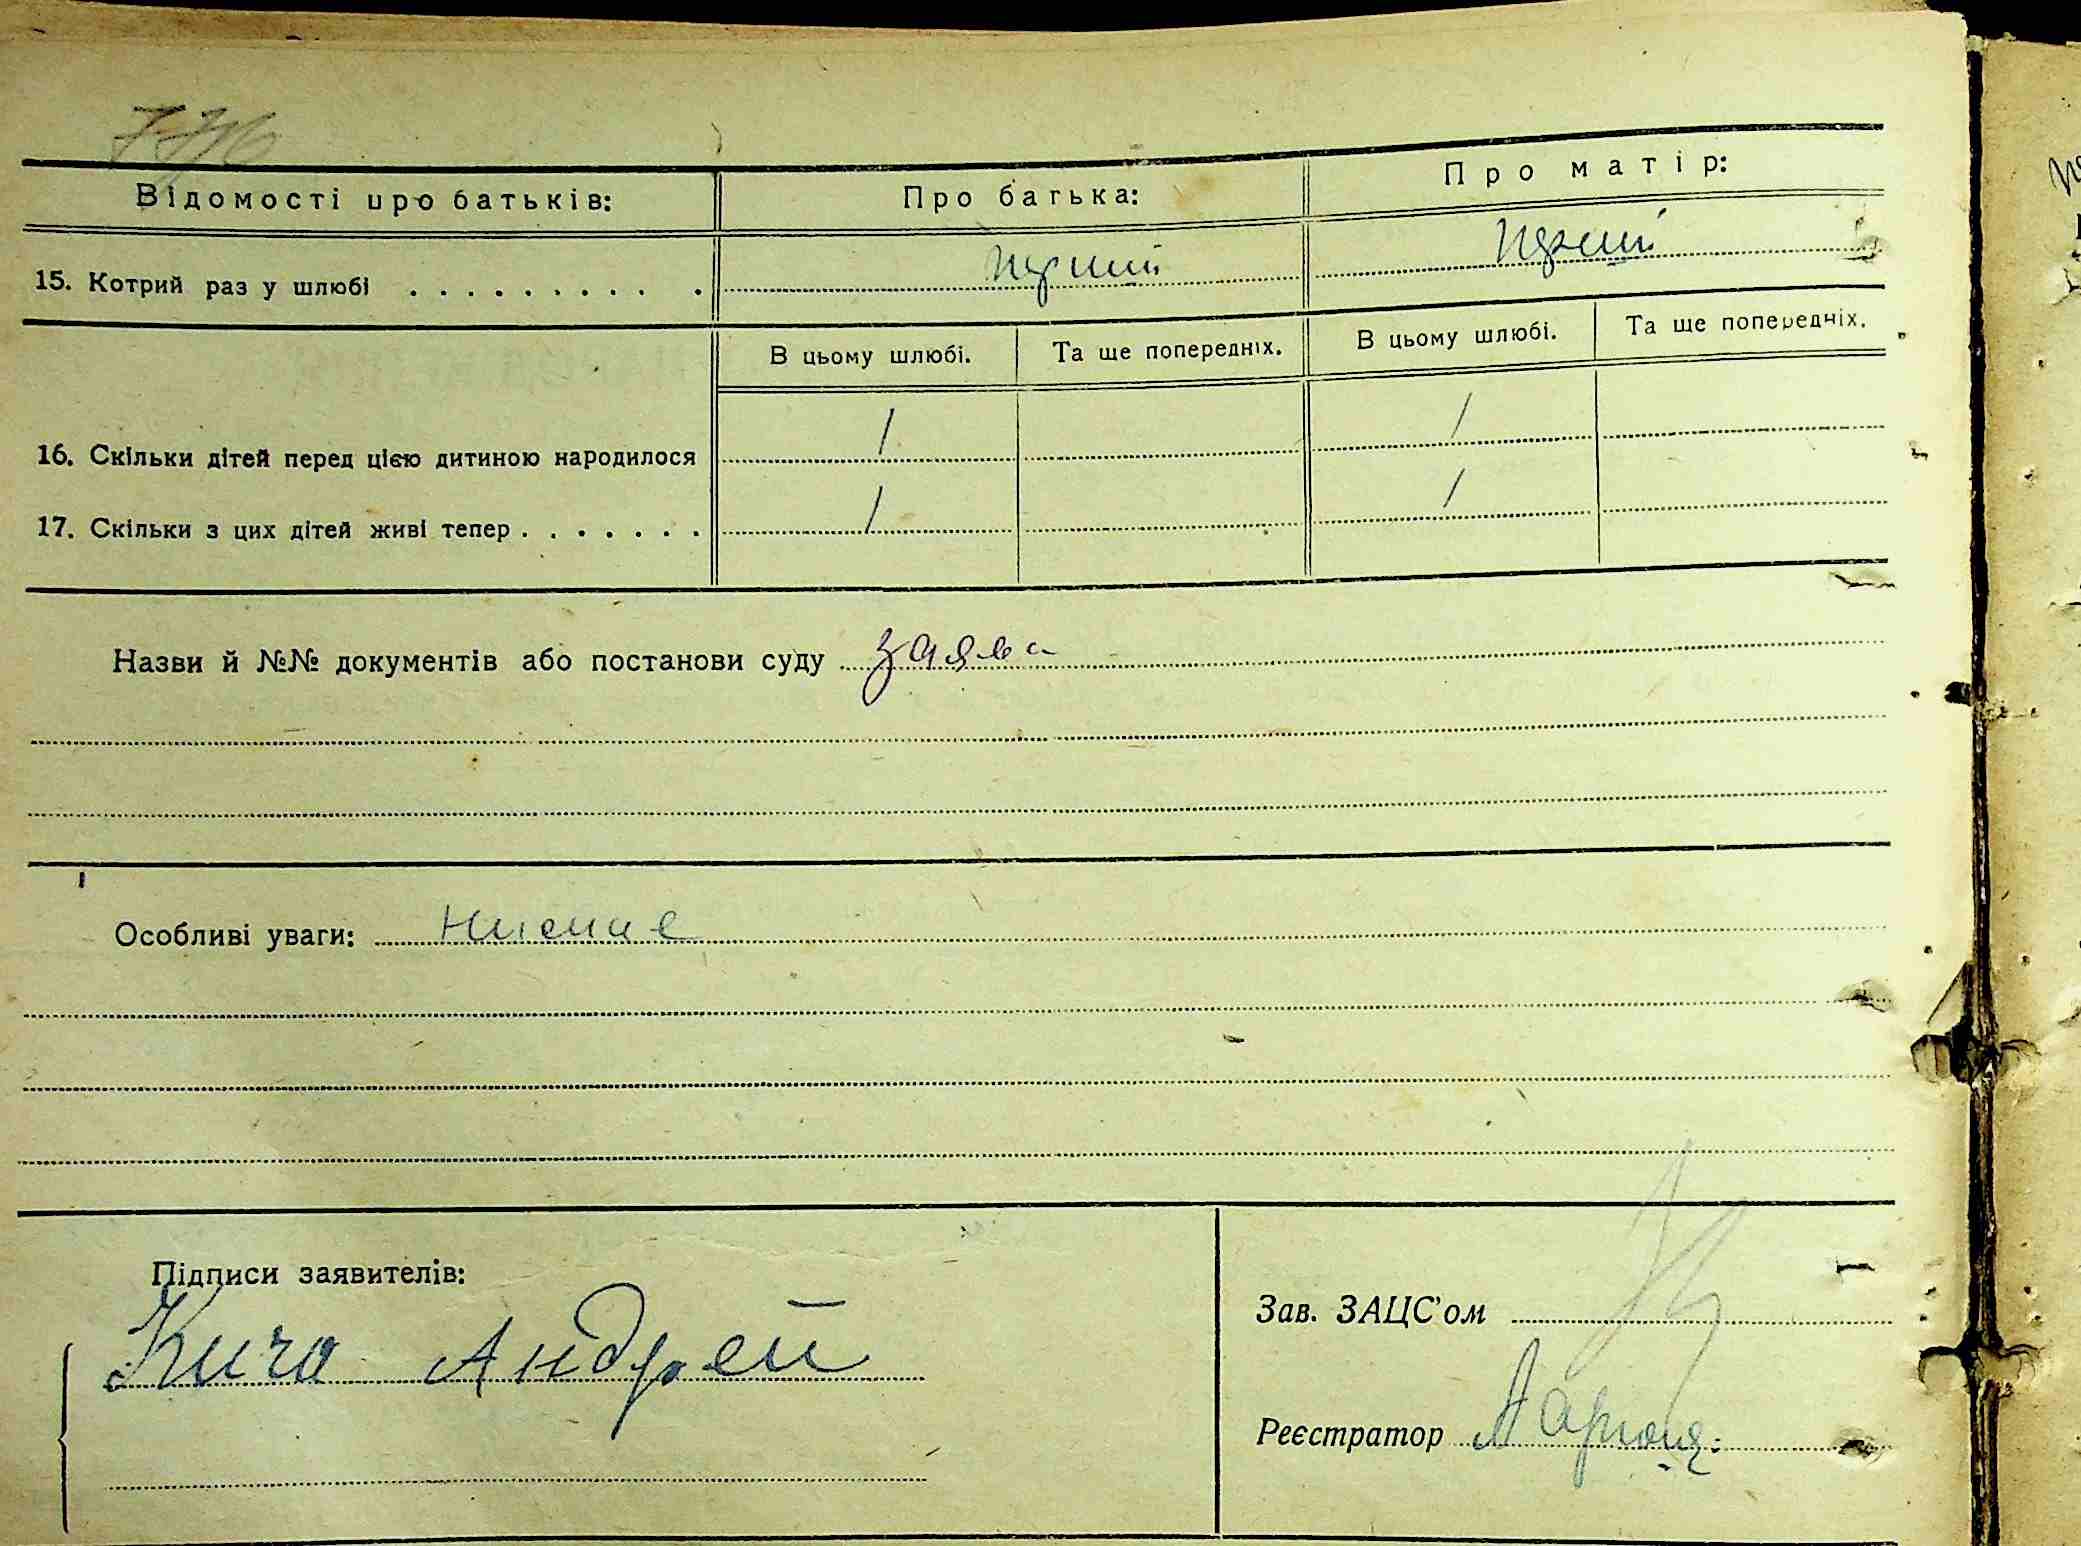 776
Відомості про батьків:
Про батька:
Про матір:
15. Котрий раз у шлюбі . . . . . . . . . .
перший
перший
В цьому шлюбі.
Та ще попередніх.
В цьому шлюбі.
Та ще попередніх.
16. Скільки дітей перед цією дитиною народилося
1
1
17. Скільки з цих дітей живі тепер . . . . . . .
1
1
Назви й №№ документів або постанови суду заява
Особливі уваги:
Підписи заявителів:
Кича Андрей
Зав. ЗАЦС'ом
Реєстратор